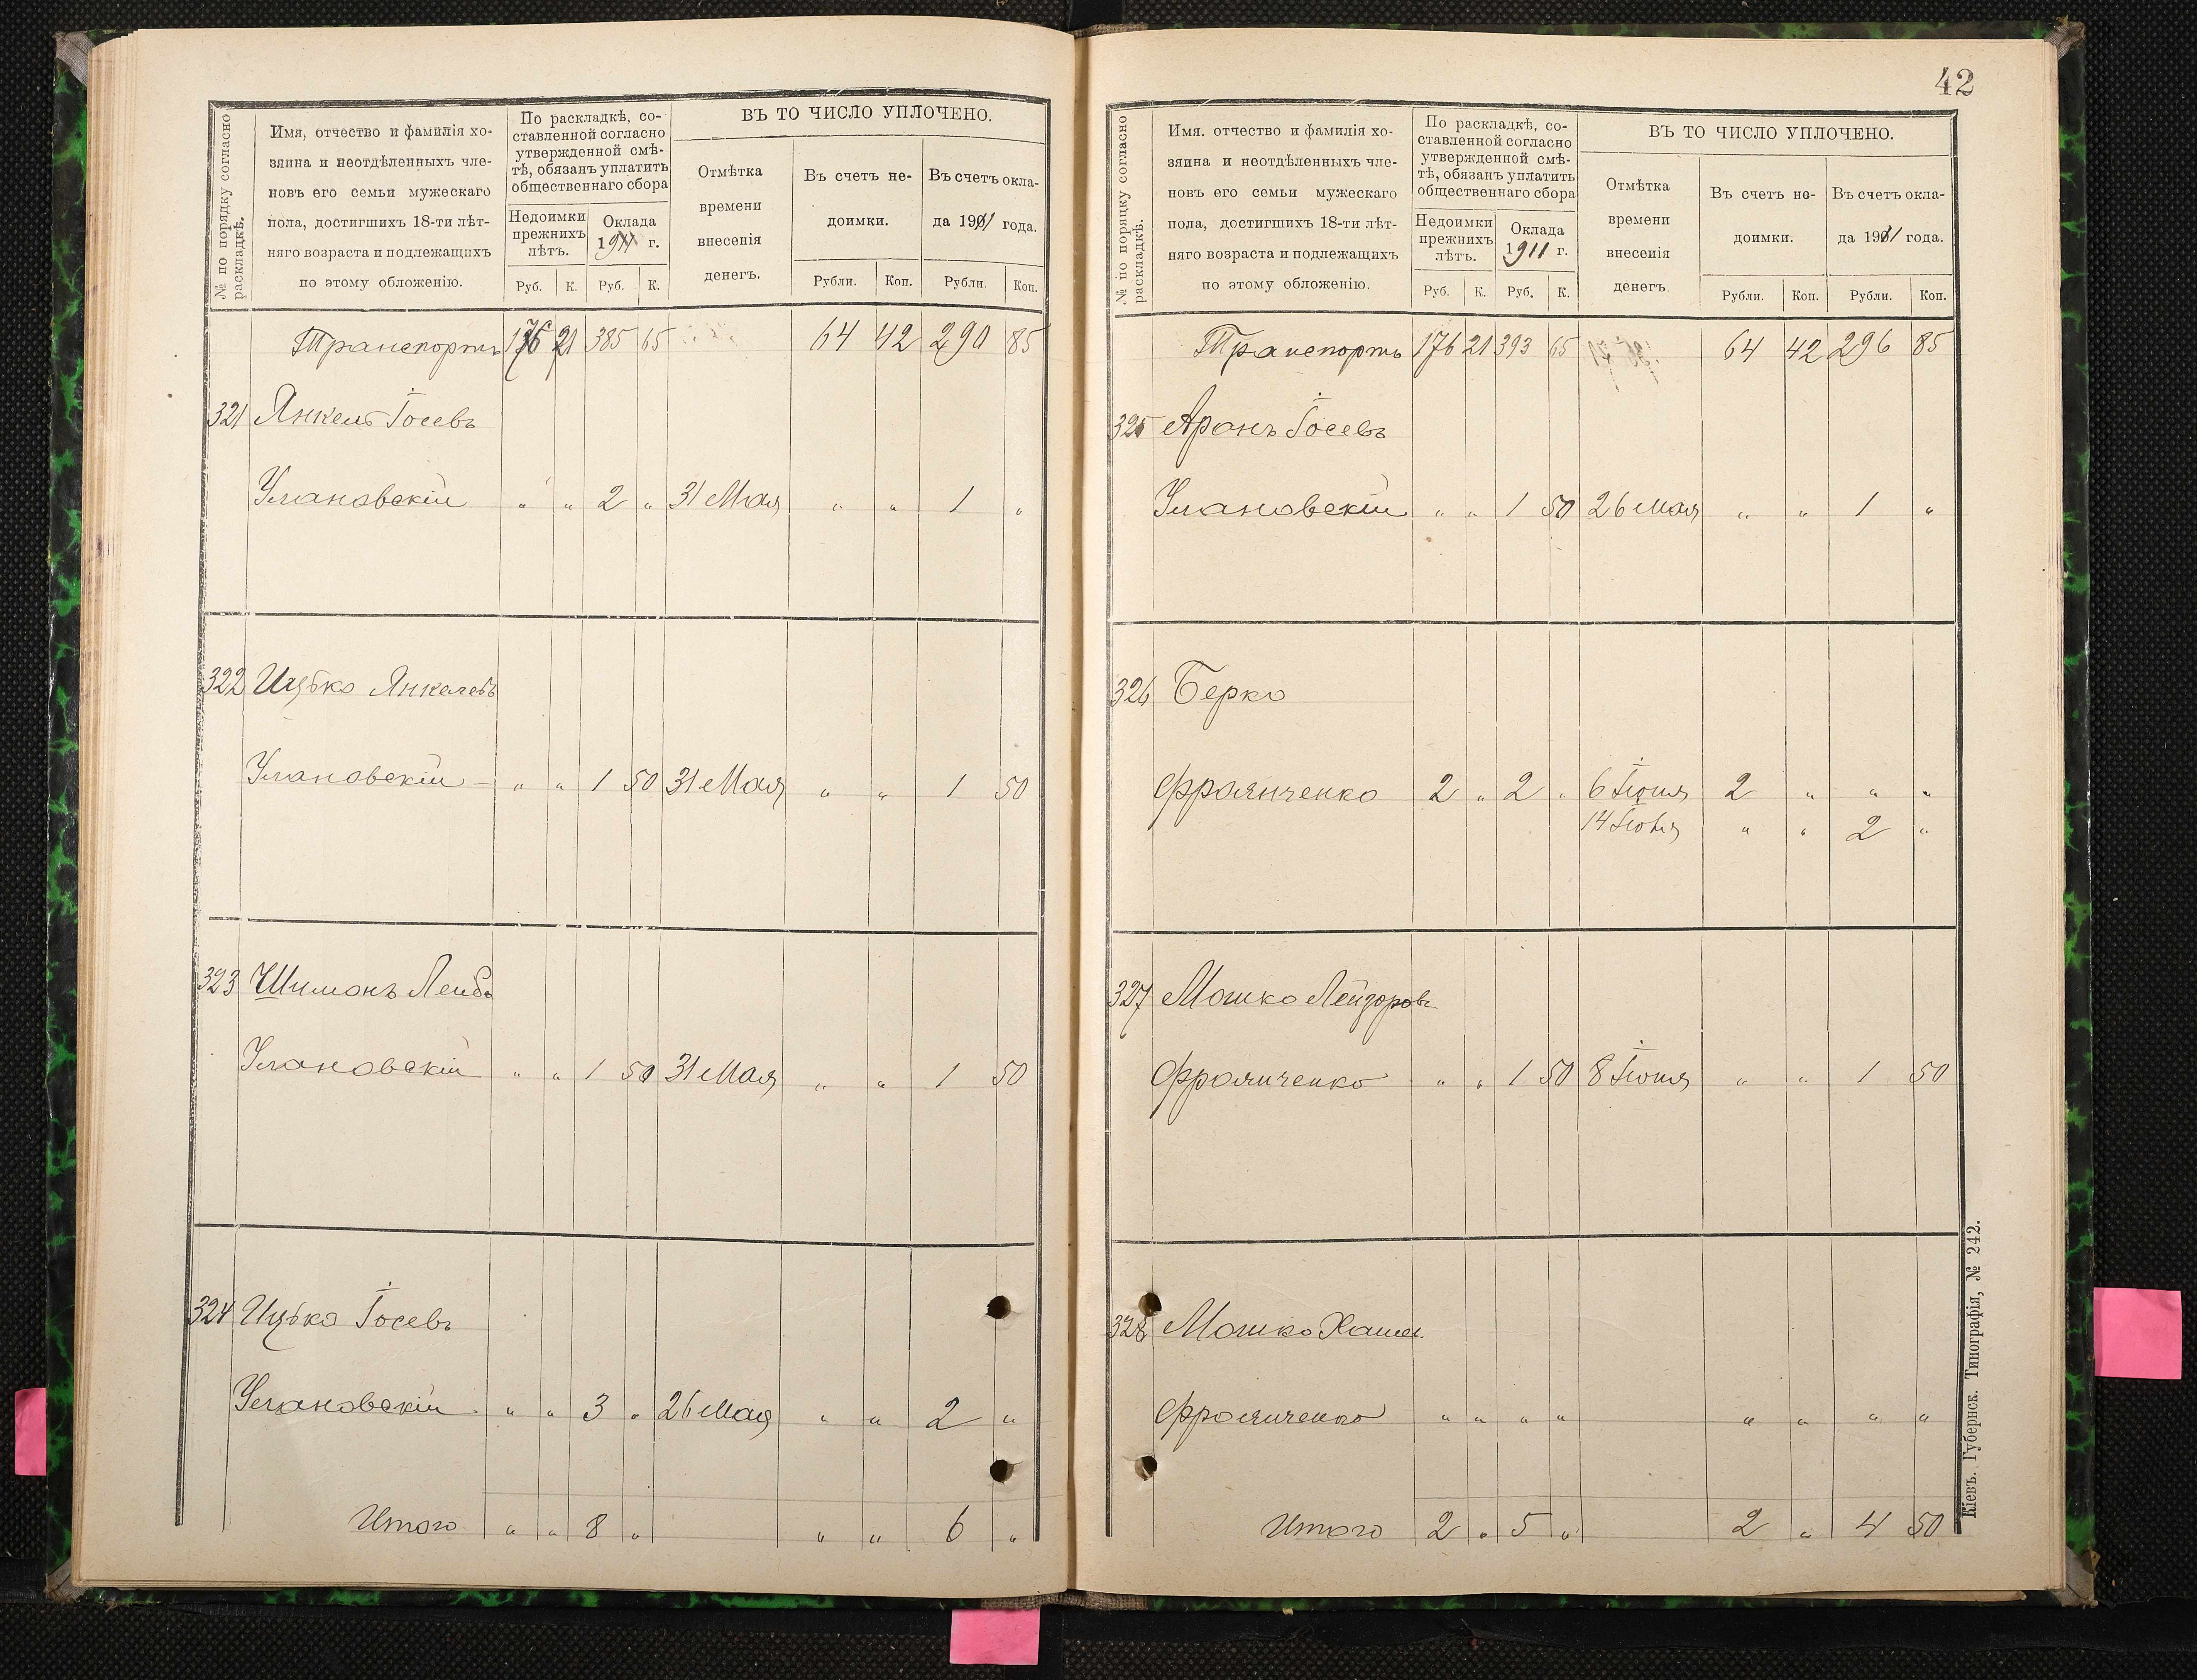 № по порядку согласно раскладкѣ.
Имя, отчество и фамилія хо-
зяина и неотдѣленныхъ чле-
новъ его семьи мужескаго
пола, достигшихъ 18-ти лѣт-
няго возраста и подлежащихъ
по этому обложенію.
По раскладкѣ, со-
ставленной согласно
утвержденной смѣ-
тѣ, обязанъ уплатить
общественнаго сбора
Недоимки
прежнихъ
лѣтъ.
Оклада
1911 г.
Руб. К. Руб. К.
ВЪ ТО ЧИСЛО УПЛОЧЕНО.
Отмѣтка
времени
внесенія
денегъ.
Въ счетъ не-
доимки.
Въ счетъ окла-
да 1911 года.
Рубли. Коп. Рубли. Коп.
Транспортъ 176 21 385 65 64 42 290 85
321 Янкель Іосевъ
Улановскій " " 2 " 31 Мая " " 1 "
322 Ицько Янкелевъ
Улановскій " " 1 50 31 Мая " " 1 50
323 Шимонъ Лейбъ
Улановскій " " 1 50 31 Мая " " 1 50
324 Ицько Іосевъ
Улановскій " " 3 " 26 Мая " " 2 "
Итого " " 8 " " " 6 "
42
№ по порядку согласно раскладкѣ.
Имя. отчество и фамилія хо-
зяина и неотдѣленныхъ чле-
новъ его семьи мужескаго
пола, достигшихъ 18-ти лѣт-
няго возраста и подлежащихъ
по этому обложенію.
По раскладкѣ, со-
ставленной согласно
утвержденной смѣ-
тѣ, обязанъ уплатить
общественнаго сбора
Недоимки
прежнихъ
лѣтъ.
Оклада
1911 г.
Руб. К. Руб. К.
ВЪ ТО ЧИСЛО УПЛОЧЕНО.
Отмѣтка
времени
внесенія
денегъ.
Въ счетъ не-
доимки.
Въ счетъ окла-
да 1911 года.
Рубли. Коп. Рубли. Коп.
Транспортъ 176 21 393 65 64 42 296 85
325 Аронъ Іосевъ
Улановскій " " 1 50 26 Мая " " 1 "
326 Берко
Фроянченко 2 " 2 " 6 Іюня 2 " " "
14 " " 2 "
327 Мошко Лейзоровъ
Фроянченко " " 1 50 8 Іюня " " 1 50
328 Мошко
Фроянченко " " " " " " " "
Итого 2 " 5 " 2 " 4 50
Кіевъ. Губернск. Типографія, № 242.